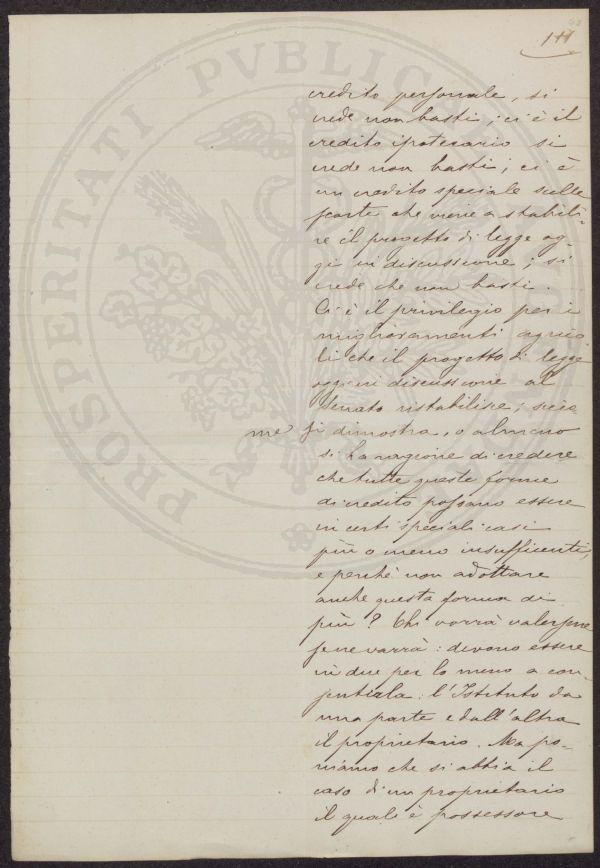 111
credito personale, si
vede non basti; ci è il
credito ipotecario si
vede non basti; ci è
un credito speciale sulle
scorte che viene a stabili-
re il progetto di legge og-
gi in discussione; si
crede che non basti.
Ci è il privilegio per i
miglioramenti agrico
li che il progetto di legge
oggi in discussione al
Senato ristabilisce; sicco
me si dimostra, o almeno
si ha ragione di credere
che tutte queste forme
di credito possano essere
in certi speciali casi
più o meno insufficenti,
e perché non adottare
anche questa forma di
più? Chi vorrà valersene
se ne varrà: devono essere
in due per lo meno a con-
sentirla: l'Istituto da
una parte e dall'altra
il proprietario. Ma po-
niamo che si abbia il
caso di un proprietario
il quale è possessore
PROSPERITATI PVBLICAE